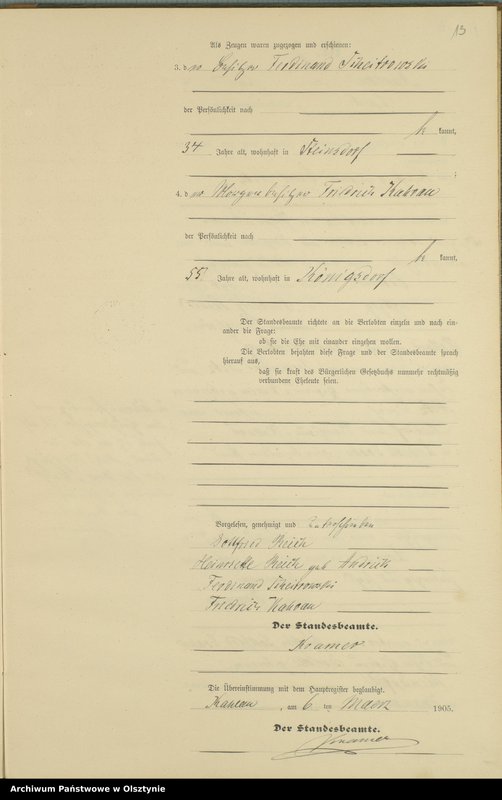 13
Als Zeugen waren zugezogen und erschienen:
3. der Besitzer Ferdinand Scheibrowski
der Persönlichkeit nach
be kannt,
34 Jahre alt, wohnhaft in Steinsdorf
4. der Morgenbesitzer Friedrich Kahrau
der Persönlichkeit nach
be kannt,
55 Jahre alt, wohnhaft in Königsdorf
Der Standesbeamte richtete an die Verlobten einzeln und nach ein-
ander die Frage:
ob sie die Ehe mit einander eingehen wollen.
Die Verlobten bejahten diese Frage und der Standesbeamte sprach
hierauf aus,
daß sie kraft des Bürgerlichen Gesetzbuchs nunmehr rechtmäßig
verbundene Eheleute seien.
Vorgelesen, genehmigt und unterschrieben
Gottfried Reich
Heinriette Reich geb
Ferdinand Scheibrowski
Friedrich Kahrau
Der Standesbeamte.
Kramer
Die Übereinstimmung mit dem Hauptregister beglaubigt.
am 6 ten Maerz 1905.
Der Standesbeamte.
Kramer
Archiwum Państwowe w Olsztynie